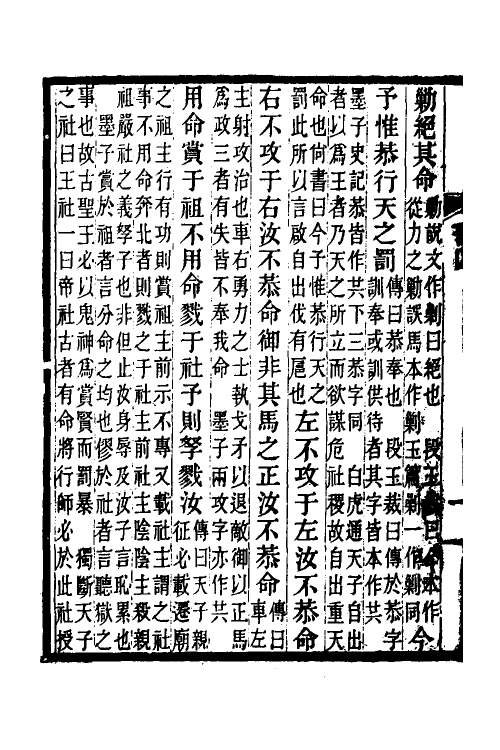 勦絕其命
勦說文作剿曰絕也 段玉裁曰今本作
從力之勦誤馬本作剿玉篇剿一作剿同
今
予惟恭行天之罰
傳曰恭奉也 段玉裁曰傳於恭字
訓奉或訓供待者其字皆本作共
墨子史記恭皆作共下三恭字同 白虎通天子自出
者以爲王者乃天之所立而欲謀危社稷故自出重天
命也尙書曰今予惟恭行天之
罰此所以言啟自出伐有扈也
左不攻于左汝不恭命
右不攻于右汝不恭命御非其馬之正汝不恭命
傳曰
車左
主射攻治也車右勇力之士執戈矛以退敵御以正馬
爲政三者有失皆不奉我命 墨子兩攻字亦作共
用命賞于祖不用命戮于社予則孥戮汝
傳曰天子親
征必載遷廟
之祖主行有功則賞祖主前示不專又載社主謂之社
事不用命奔北者則戮之于社主前社主陰陰主殺親
祖嚴社之義孥子也非但止汝身辱及汝子言恥累也
墨子賞於祖者言分命之均也僇於社者言聽獄之
事也故古聖王必以鬼神爲賞賢而罰暴 獨斷天子
之社曰王社一曰帝社古者有命將行師必於此社授